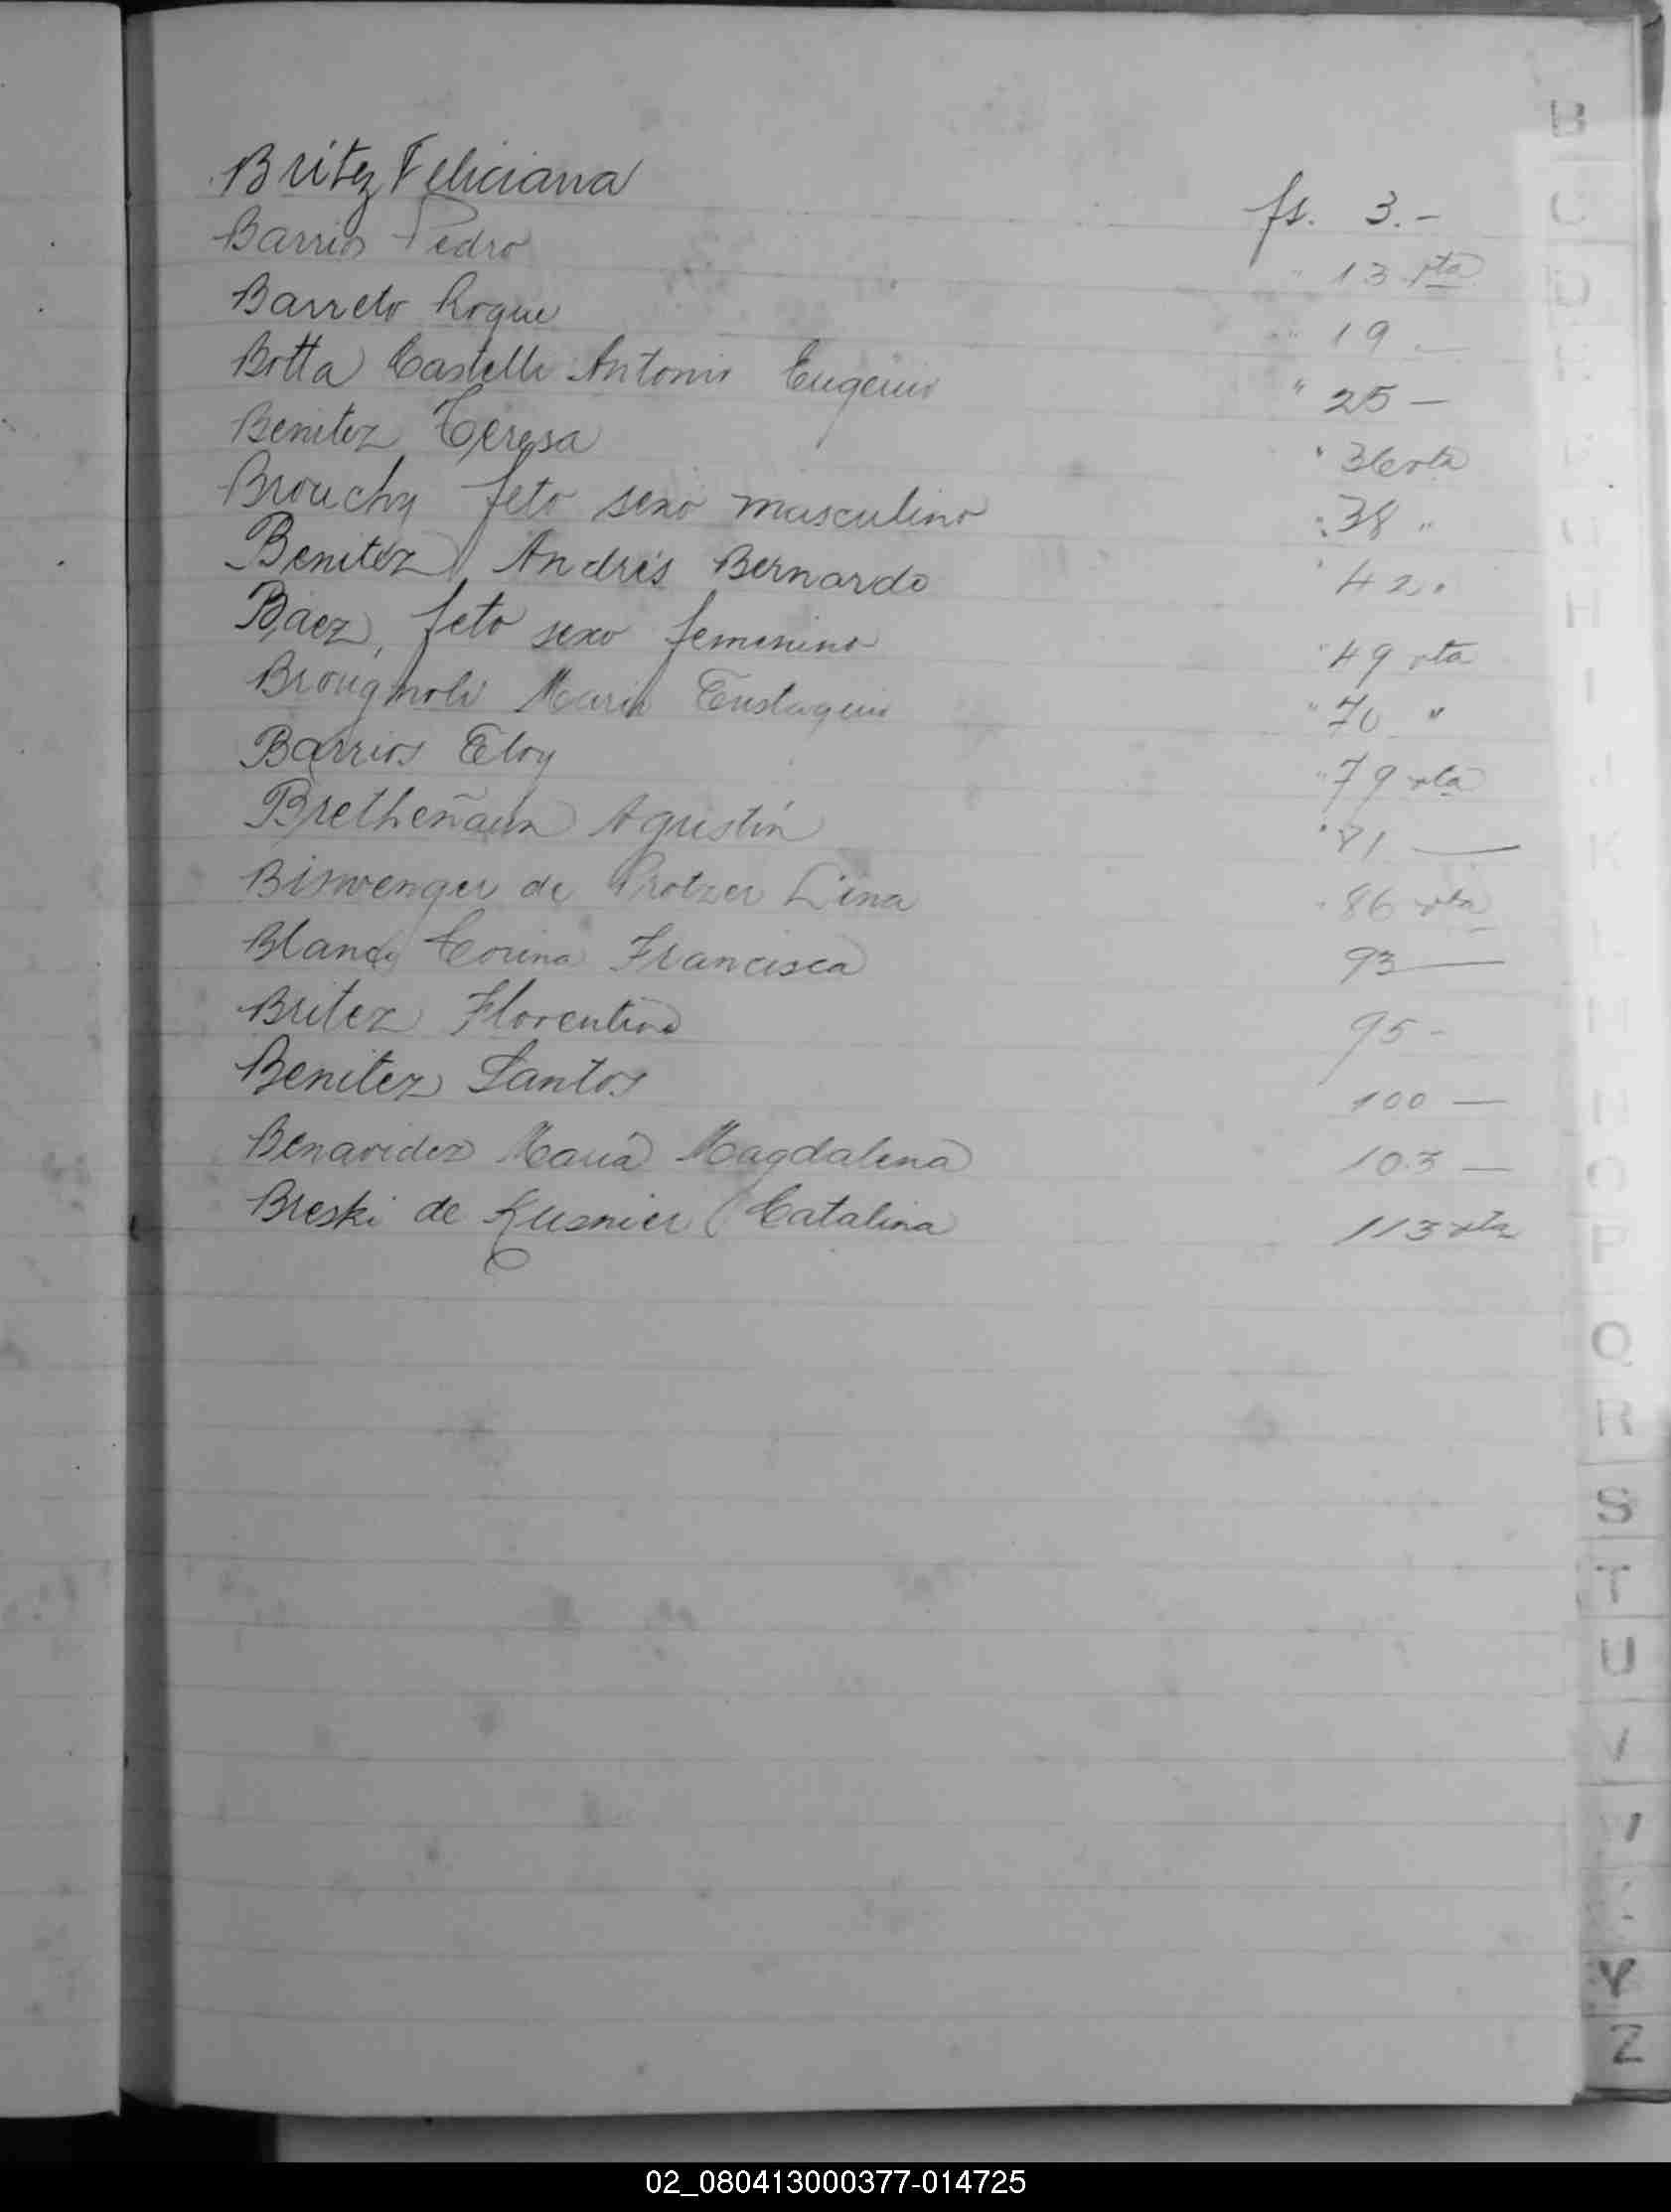 Britez Feliciana fs. 3.-
Barrios Pedro " 13 vta
Barreto Roque " 19 —
Botta Castelli Antonio Eugenio " 25 —
Benitez Teresa " 36 vta
Brouchy feto sexo masculino " 38 "
Benitez Andrés Bernardo " 42 "
Báez, feto sexo femenino " 49 vta
Brougnoli María Eustaquia " 70 "
Barrios Eloy " 79 vta
Agustín " 81 —
de Lina " 86 vta
Corina Francisca 93 —
Britez Florentina 95 -
Benitez Santos 100 —
Benavidez María Magdalena 103 —
Breski de Kusnier Catalina 113 vta
B
C
D
H
I
J
K
L
M
N
O
P
Q
R
S
T
U
Y
Z
02_080413000377-014725